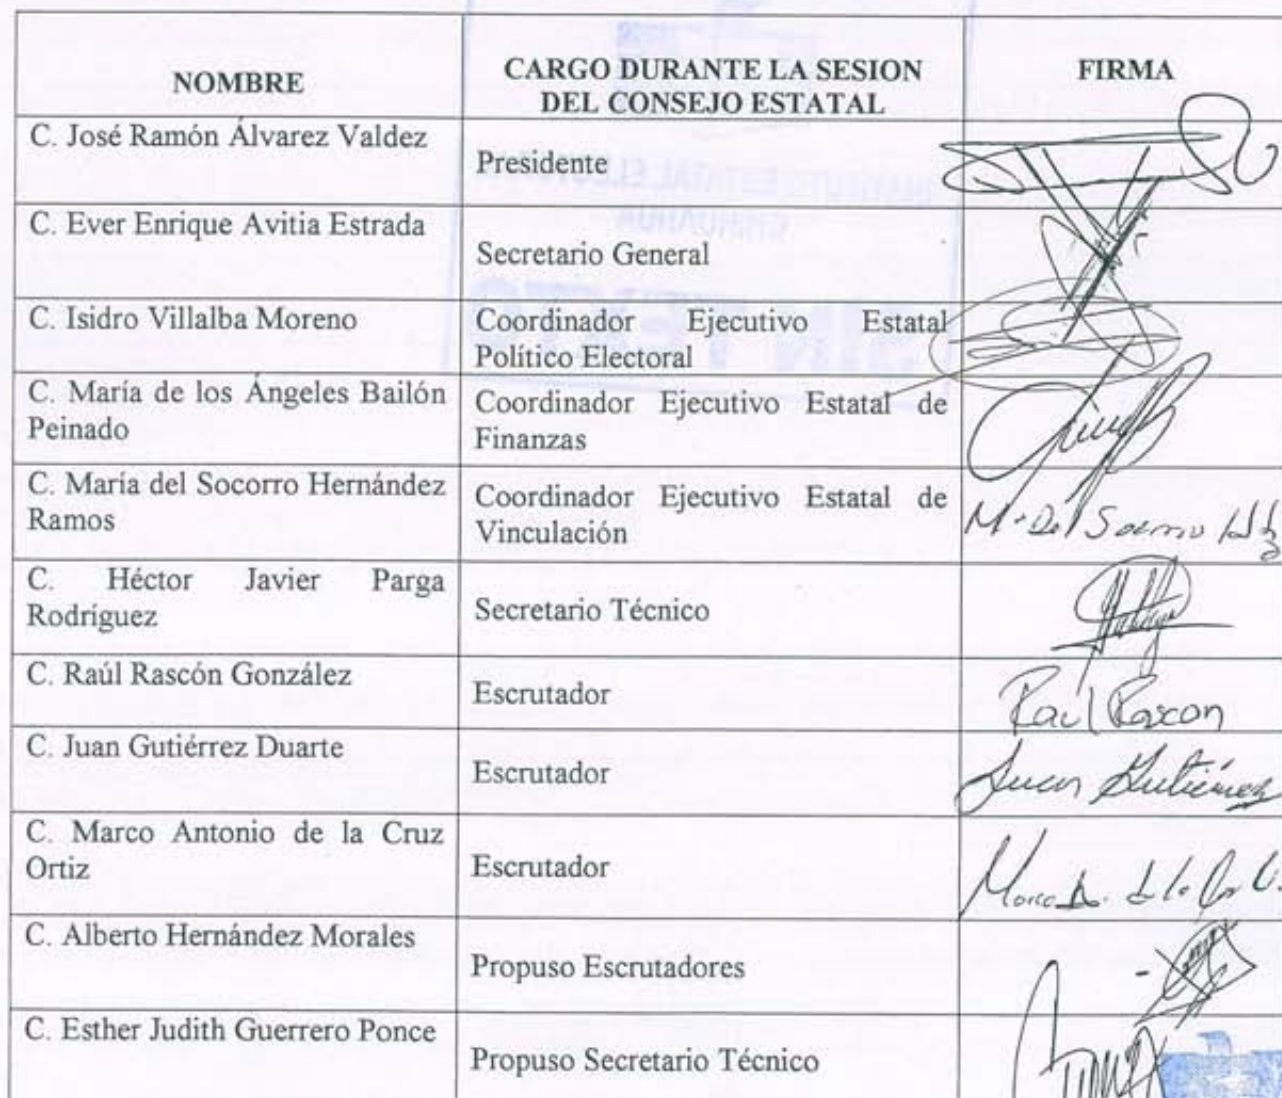 NOMBRE
CARGO DURANTE LA SESION
DEL CONSEJO ESTATAL
FIRMA
C. José Ramón Álvarez Valdez
Presidente
C. Ever Enrique Avitia Estrada
Secretario General
C. Isidro Villalba Moreno
Coordinador Ejecutivo Estatal
Político Electoral
C. María de los Ángeles Bailón
Peinado
Coordinador Ejecutivo Estatal de
Finanzas
C. María del Socorro Hernández
Ramos
Coordinador Ejecutivo Estatal de
Vinculación
Mª Del Socorro
C. Héctor Javier Parga
Rodríguez
Secretario Técnico
C. Raúl Rascón González
Escrutador
Raúl Rascon
C. Juan Gutiérrez Duarte
Escrutador
Juan Gutiérrez
C. Marco Antonio de la Cruz
Ortiz
Escrutador
Marco A. de la
C. Alberto Hernández Morales
Propuso Escrutadores
C. Esther Judith Guerrero Ponce
Propuso Secretario Técnico